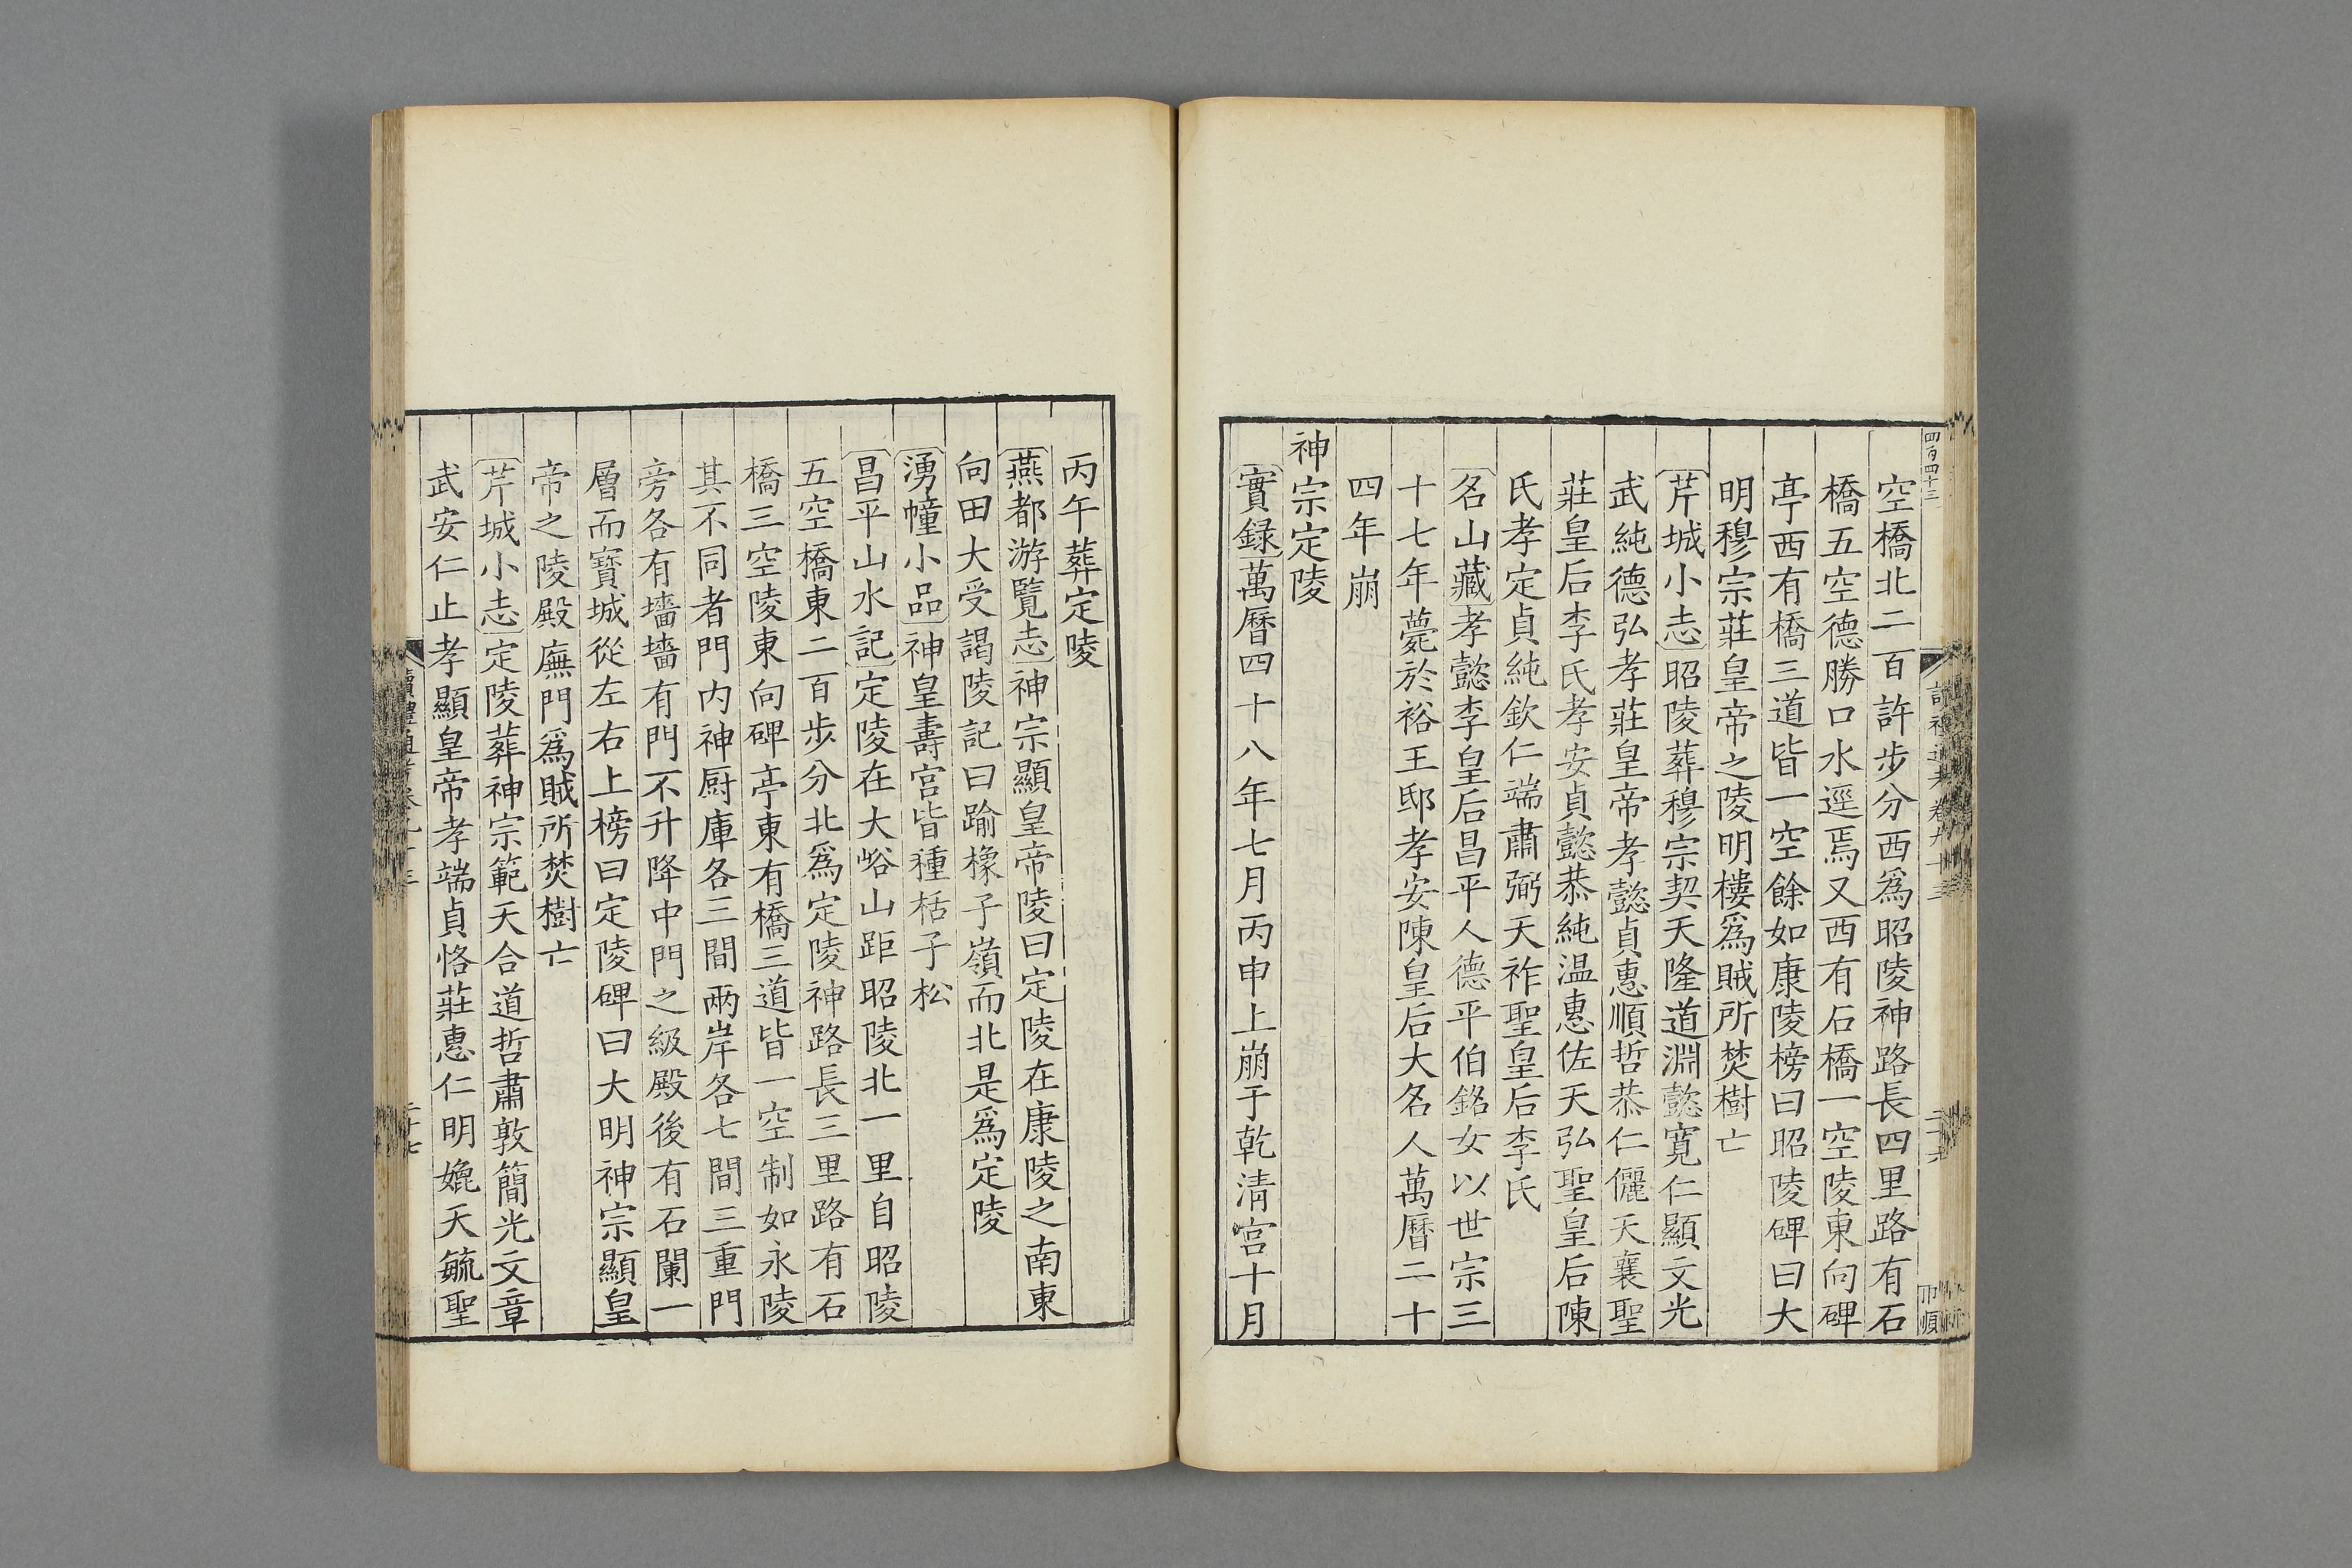 四百四十三
空橋北二百許步分西爲昭陵神路長四里路有石
橋五空德勝口水逕焉又西有石橋一空陵東向碑
亭西有橋三道皆一空餘如康陵榜曰昭陵碑曰大
明穆宗莊皇帝之陵明樓爲賊所焚樹亡
芹城小志昭陵葬穆宗契天隆道淵懿寬仁顯文光
武純德弘孝莊皇帝孝懿貞惠順哲恭仁儷天襄聖
莊皇后李氏孝安貞懿恭純温惠佐天弘聖皇后陳
氏孝定貞純欽仁端肅弼天祚聖皇后李氏
名山藏孝懿李皇后昌平人德平伯銘女以世宗三
十七年薨於裕王邸孝安陳皇后大名人萬曆二十
四年崩
神宗定陵
實録萬曆四十八年七月丙申上崩于乾清宮十月
丙午葬定陵
燕都游覽志神宗顯皇帝陵曰定陵在康陵之南東
向田大受謁陵記曰踰橡子嶺而北是爲定陵
湧幢小品神皇壽宮皆種栝子松
昌平山水記定陵在大峪山距昭陵北一里自昭陵
五空橋東二百步分北爲定陵神路長三里路有石
橋三空陵東向碑亭東有橋三道皆一空制如永陵
其不同者門内神厨庫各三間兩岸各七間三重門
旁各有墻墻有門不升降中門之級殿後有石闌一
層而寶城從左右上榜曰定陵碑曰大明神宗顯皇
帝之陵殿廡門爲賊所焚樹亡
芹城小志定陵葬神宗範天合道哲肅敦簡光文章
武安仁止孝顯皇帝孝端貞恪莊惠仁明媲天毓聖